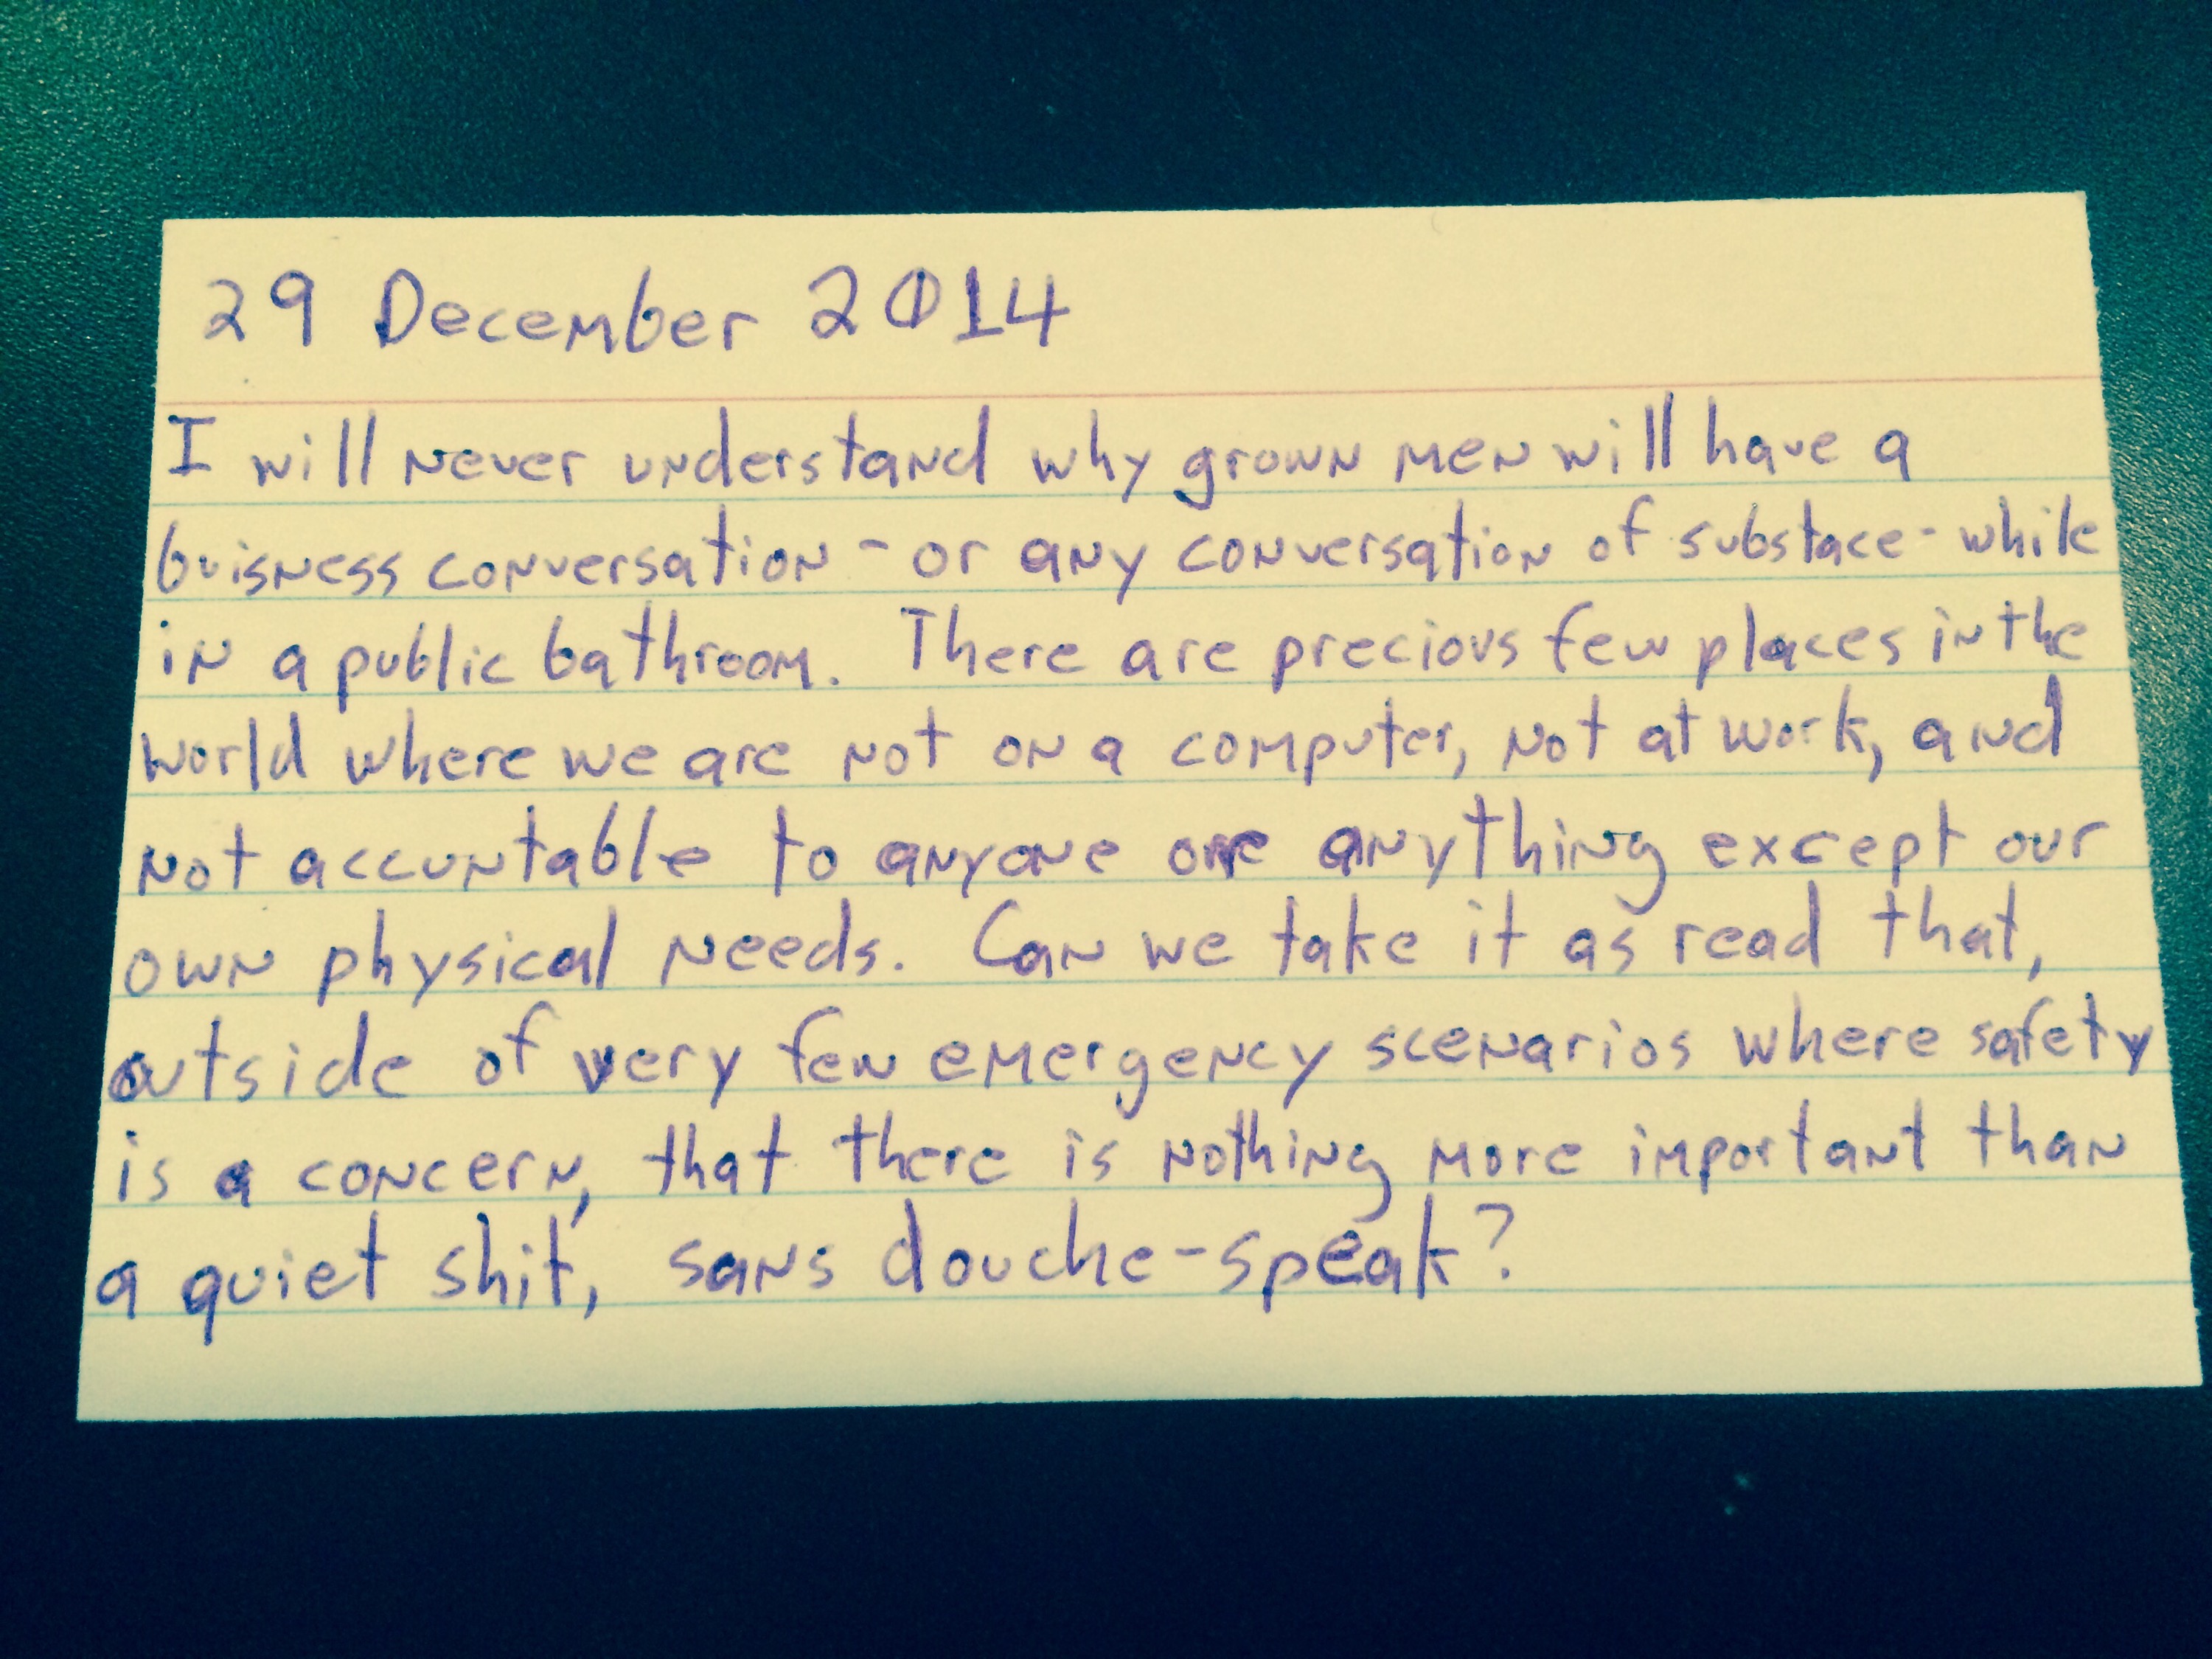 29 December 2014
I will never understand why grown men will have a
buisness conversation - or any conversation of substace - while
in a public bathroom. There are precious few places in the
world where we are not on a computer, not at work, and
not accuntable to anyone or anything except our
own physical needs. Can we take it as read that,
outside of very few emergency scenarios where safety
is a concern, that there is nothing more important than
a quiet shit, sans douche-speak?